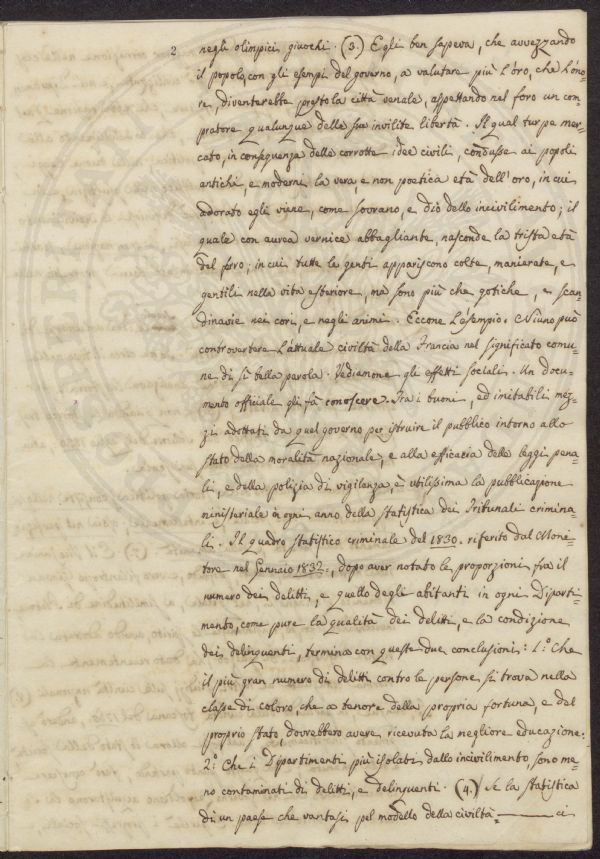 2
negli olimpici giuochi. (3.) Egli ben sapeva, che avvezzando
il popolo, con gli esempi del governo, a valutare più l'oro, che l'ono=
re, diventerebbe presto la città venale, aspettando nel foro un com=
pratore qualunque delle sue invilite libertà. Il qual turpe mer=
cato, in conseguenza delle corrotte idee civili, condusse ai popoli
antichi, e moderni la vera, e non poetica età dell'oro, in cui
adorato egli viene, come sovrano, e dio dello incivilimento; il
quale con aurea vernice abbagliante, nasconde la trista età
del ferro; in cui tutte le genti appariscono colte, manierate, e
gentili nella vita esteriore, ma sono più che gotiche, e scan=
dinavie nei cori, e negli animi. Eccone l'esempio. Niuno può
controvertere l'attuale civiltà della Francia nel significato comu=
ne di sì bella parola. Vediamone gli effetti sociali. Un docu=
mento officiale gli fà conoscere. Fra i buoni, ed imitabili mez=
zi adottati da quel governo per istruire il pubblico intorno allo
stato della moralità nazionale, e alla efficacia delle leggi pena=
li, e della polizia di vigilanza, è utilissima la pubblicazione
ministeriale in ogni anno della statistica dei Tribunali crimina=
li. Il quadro statistico criminale del 1830. riferito dal Moni=
tore nel Gennaio 1832., dopo aver notato le proporzioni fra il
numero dei delitti, e quello degli abitanti in ogni Diparti=
mento, come pure la qualità dei delitti, e la condizione
dei delinquenti, termina con queste due conclusioni: 1.° Che
il più gran numero di delitti contro le persone si trova nella
classe di coloro, che a tenore della propria fortuna, e del
proprio stato, dovrebbero avere ricevuta la megliore educazione:
2.° Che i Dipartimenti più isolati dallo incivilimento, sono me=
no contaminati di delitti, e delinquenti. (4.) Se la statistica
di un paese che vantasi pel modello della civiltà ——— ci